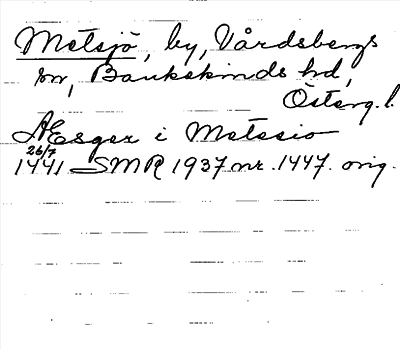 Metsjö, by, Vårdsbergs
sn, Bankekinds hd,
Österg. l.
Æsger i Metssio
26/7
1441 SMR 1937 nr. 1447. orig.